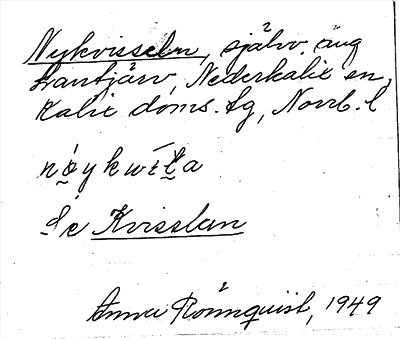 Nykvisseln, själv. äng
Trantjärv, Nederkalix sn,
Kalix doms. lg, Norrb. l
Se Kvisslan
Anna Rönnquist, 1949